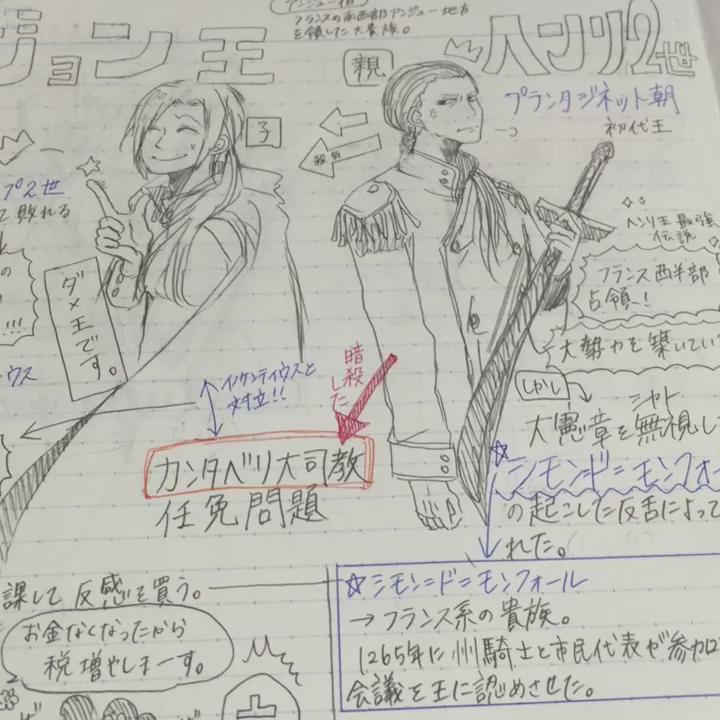 アンジュー伯
フランスの南西部アンジュー地方
を領した大貴族。
ジョン王
親
ヘンリ2世
プランタジネット朝
初代王
子
殺気
プ2世
て敗れる
の
!!!
ウス
ダメ王です。
ヘンリ王最強
伝説
フランス西半部
占領!
大勢力を築いてい
しかし
シャト
大憲章を無視し
暗殺
した
インケンティウスと
対立!!
カンタベリ大司教
任免問題
シモン=ド=モンフォー
の起こした反舌によって
れた。
課して反感を買う。
お金なくなったから
税増やしまーす。
シモン=ド=モンフォール
→フランス系の貴族。
1265年に州騎士と市民代表が参加
会議を王に認めさせた。